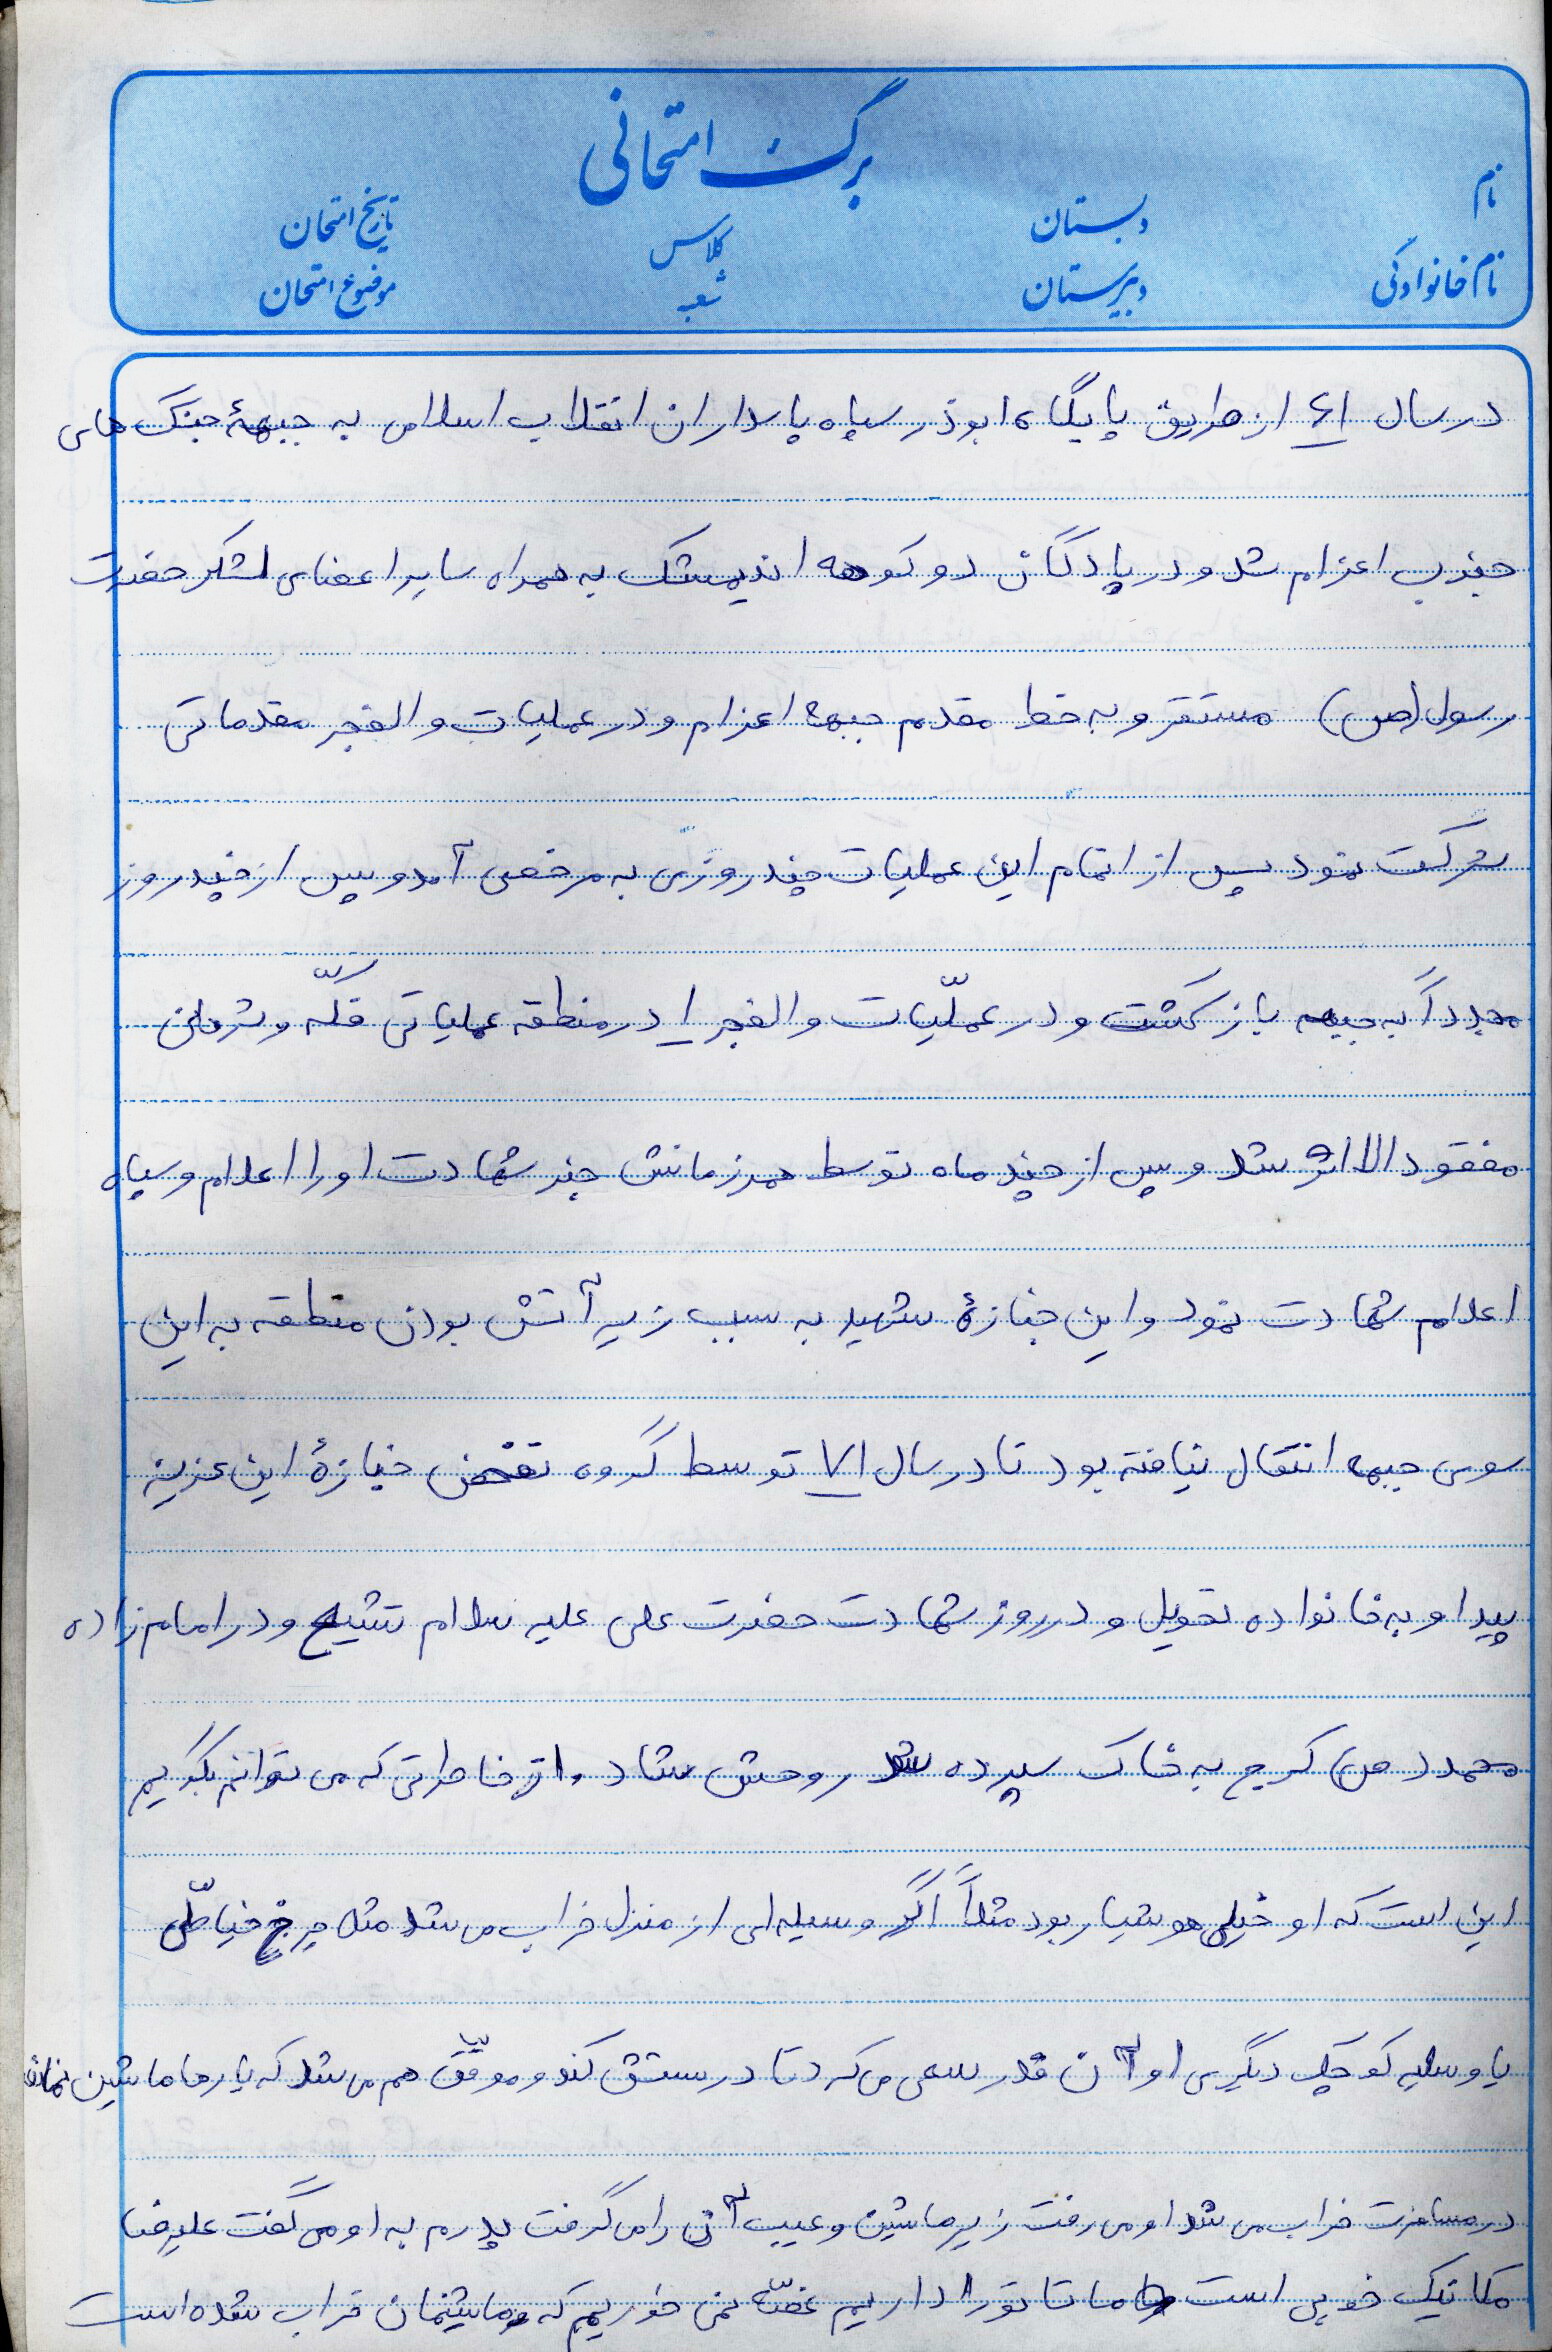 برگ امتحانی
نام
دبستان
کلاس
تاریخ امتحان
نام خانوادگی
دبیرستان
شعبه
موضوع امتحان
در سال ۶۱ از طریق پایگاه ابوذر سپاه پاسداران انقلاب اسلامی به جبههٔ جنگ های
جنوب اعزام شد و در پادگان دوکوهه اندیمشک به همراه سایر اعضای لشکر حضرت
رسول (ص) مستقر و به خط مقدم جبهه اعزام و در عملیات والفجر مقدماتی
شرکت نمود پس از اتمام این عملیات چند روزی به مرخصی آمد و پس از چند روز
مجدداً به جبهه بازگشت و در عملیّات والفجر ۱ در منطقه عملیاتی فکّه و شرهانی
مفقود الااثر شد و پس از چند ماه توسط همرزمانش خبر شهادت او را اعلام و سپاه
اعلام شهادت نمود و این جنازهٔ شهید به سبب زیر آتش بودن منطقه به این
سوی جبهه انتقال نیافته بود تا در سال ۷۱ توسط گروه تفحض جنازهٔ این عزیز
پیدا و به خانواده تحویل و در روز شهادت حضرت علی علیه سلام تشیع و در امام زاده
محمد (ص) کرج به خاک سپرده شد روحش شاد. از خاطراتی که می توانم بگویم
این است که او خیلی هوشیار بود مثلاً اگر وسیله ای از منزل خراب می شد مثل چرخ خیاطّی
یا وسایه کوچک دیگری او آن قدر سعی می کرد تا درستش کند و موفّق هم می شد که یا رها ماشین نمان
در مسافرت خراب می شد او می رفت زیر ماشین و عیب آن را می گرفت پدرم به او می گفت علیرضا
مکانیک خوبی است ما تا تو را داریم غصّه نمی خوریم که ماشینمان خراب شده است